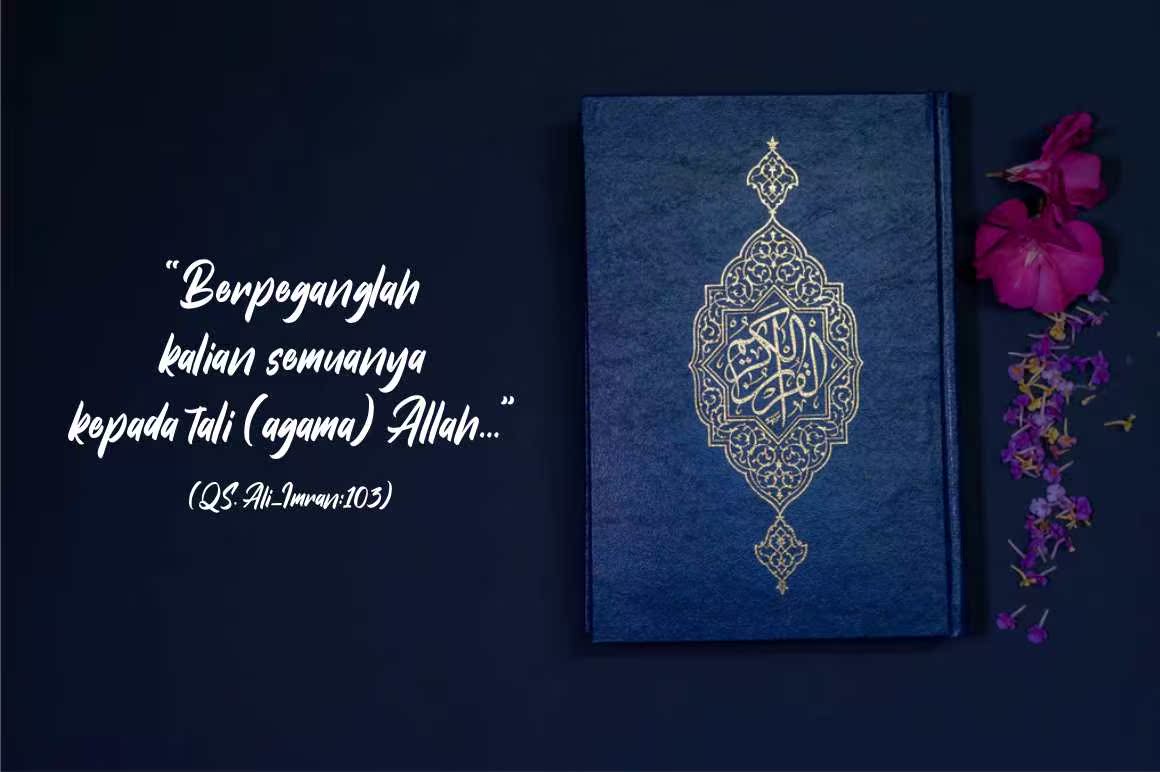 “Berpeganglah
kalian semuanya
kepada tali (agama) Allah...”
(QS. Ali_Imran:103)
القرآن الكريم